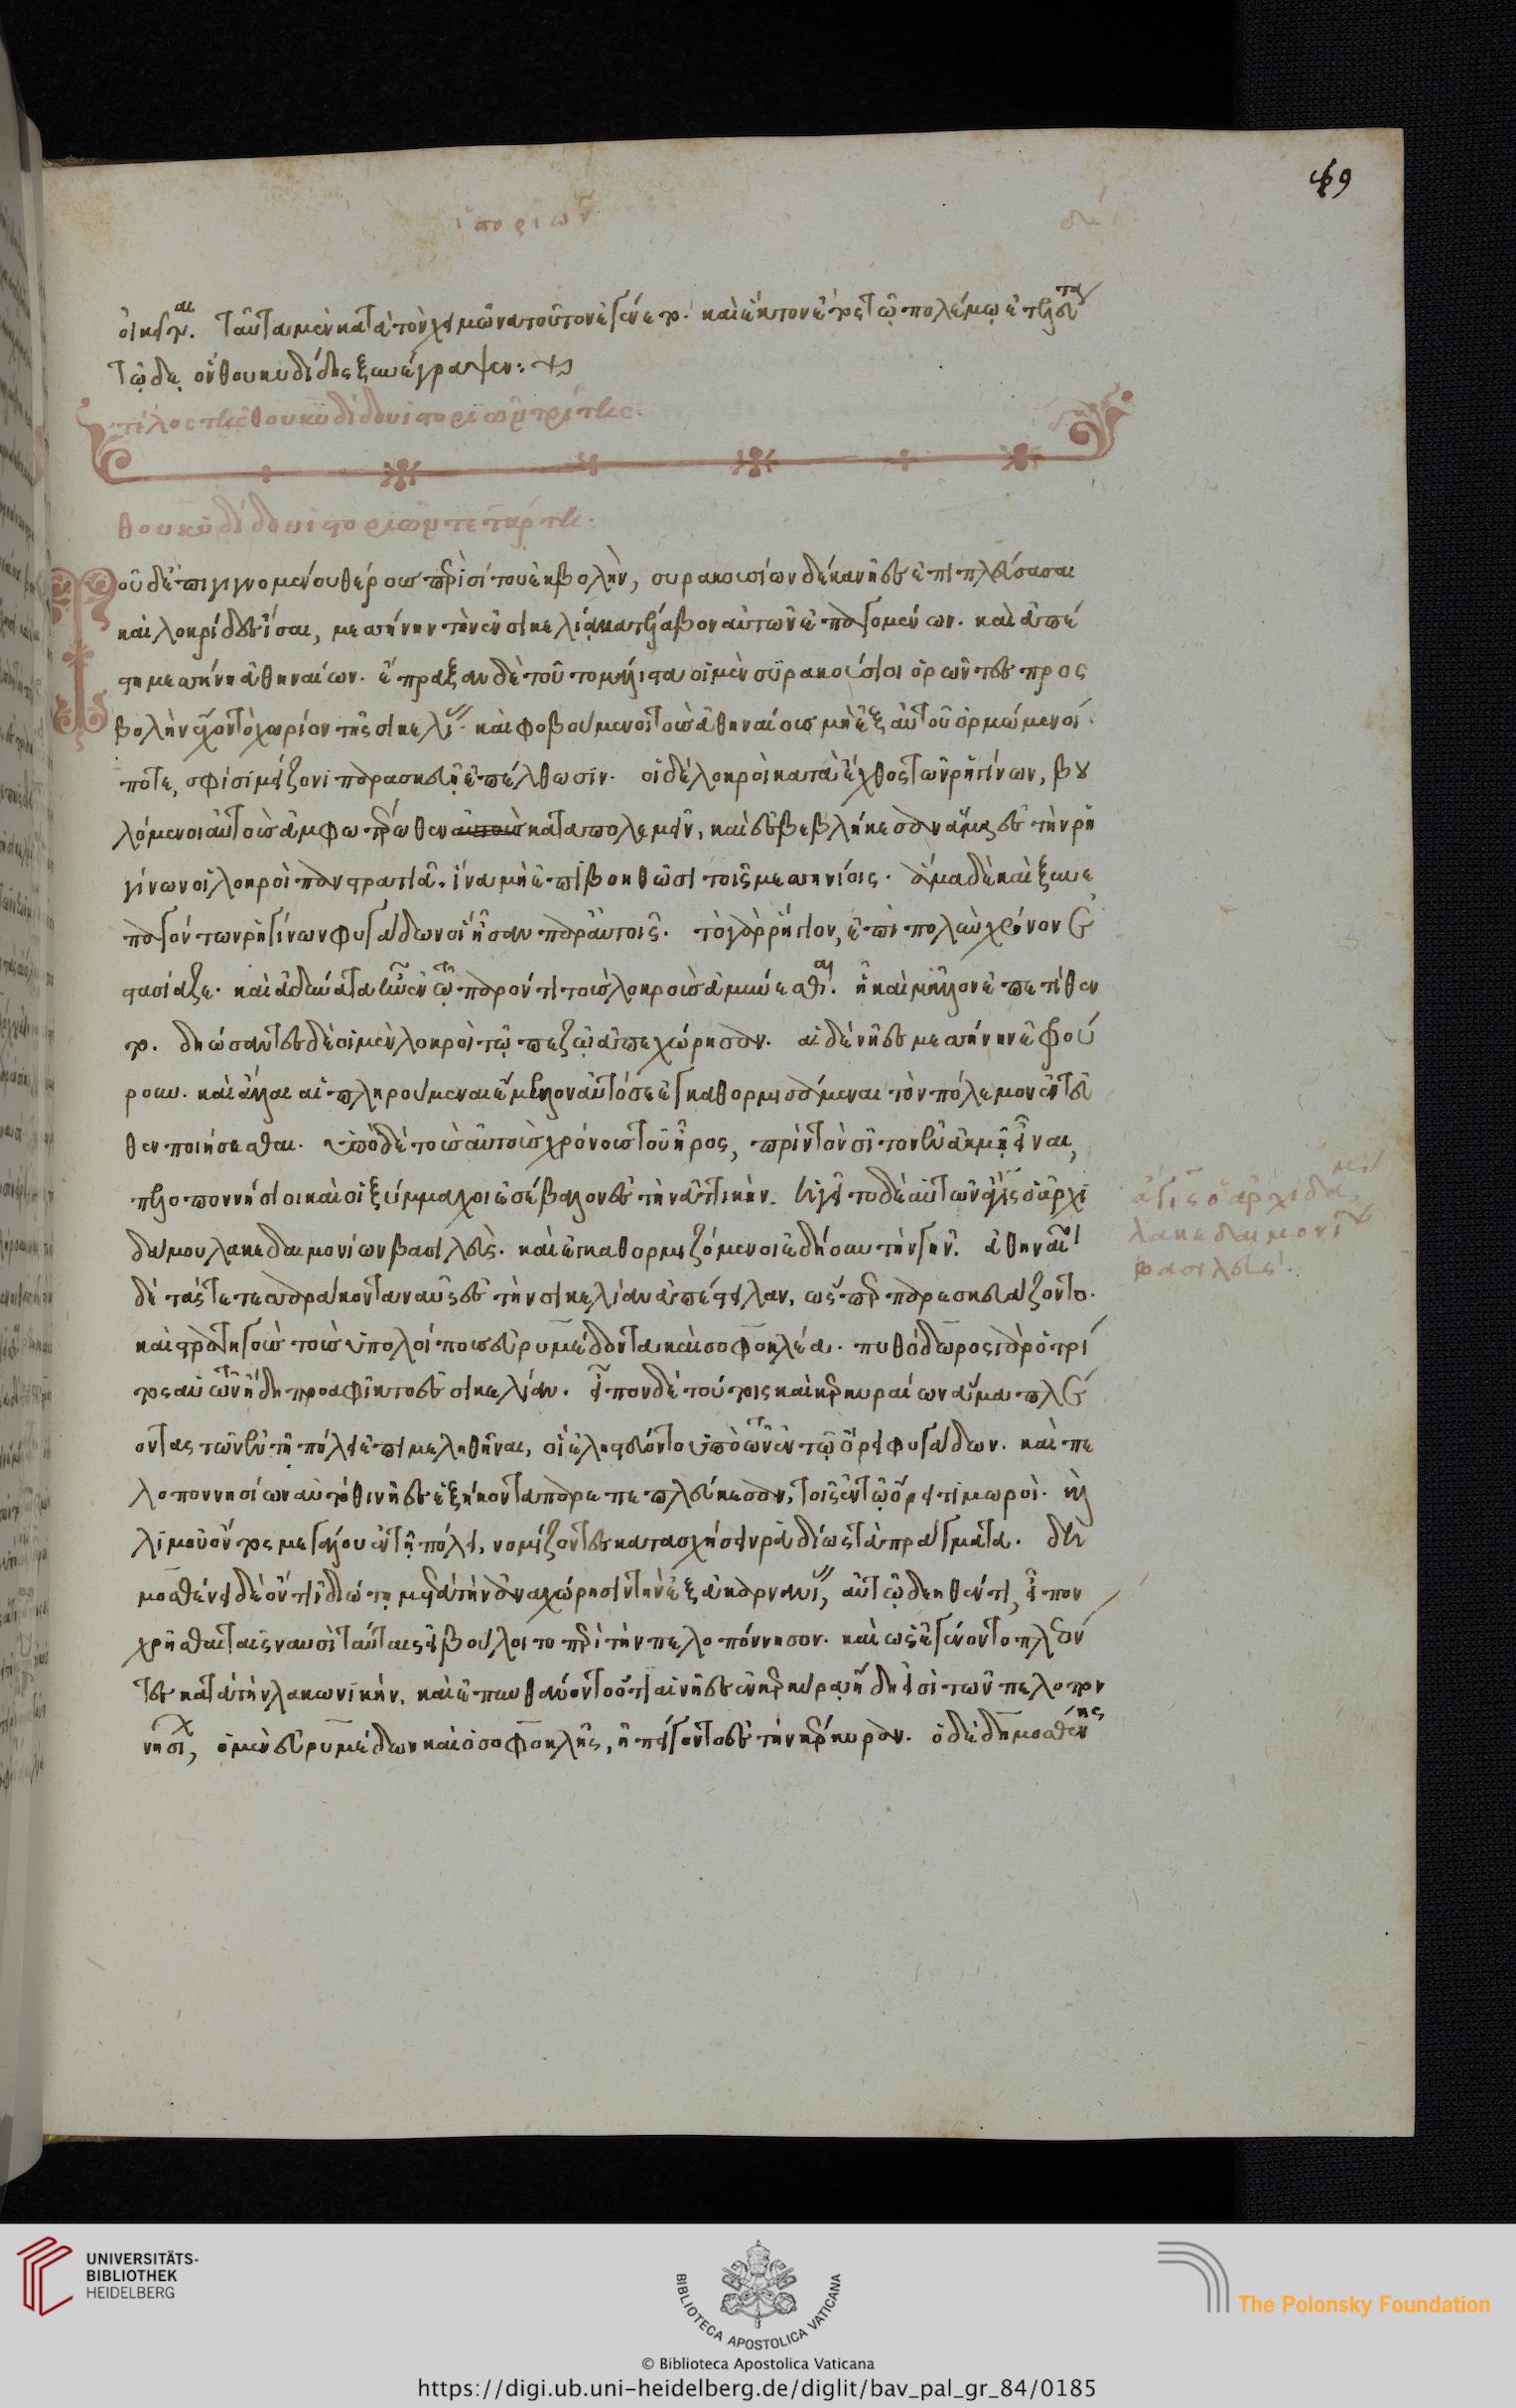 49
ἱστοριῶν δ΄
οἰκεῖται. ταῦτα μὲν κατὰ τὸν χειμῶνα τοῦτον ἐγένετο. καὶ ἕκτον ἔτος τῷ πολέμῳ ἐτελεύτα
τῷδε ὃν θουκυδίδης ξυνέγραψεν:
τέλος τῆς θουκυδίδου ἱστοριῶν τρίτης:
θουκυδίδου ἱστοριῶν τετάρτη:
Τοῦ δ' ἐπιγιγνομένου θέρους περὶ σίτου ἐκβολὴν, συρακουσίων δέκα νῆες ἐπιπλεύσασαι
καὶ λοκρίδες ἴσαι, μεσσήνην τὴν ἐν σικελίᾳ κατέλαβον αὐτῶν ἐπαγομένων. καὶ ἀπέ
στη μεσσήνη ἀθηναίων. ἔπραξαν δὲ τοῦτο μάλιστα οἱ μὲν συρακούσιοι ὁρῶντες προσ
βολὴν ἔχον τὸ χωρίον τῆς σικελίας καὶ φοβούμενοι τοὺς ἀθηναίους μὴ ἐξ αὐτοῦ ὁρμώμενοί
ποτε, σφίσι μείζονι παρασκευῇ ἐπέλθωσιν. οἱ δὲ λοκροὶ κατὰ ἔχθος τῶν ῥηγίνων, βου
λόμενοι αὐτοὺς ἀμφωτέρωθεν καταπολεμεῖν, καὶ ἐσεβεβλήκεσαν ἅμα ἐς τὴν ῥη
γίνων οἱ λοκροὶ πανστρατιᾷ. ἵνα μὴ ἐπιβοηθῶσι τοῖς μεσσηνίοις. ἅμα δὲ καὶ ξυνε
παγόντων ῥηγίνων φυγάδων οἳ ἦσαν παρ' αὐτοῖς. τὸ γὰρ ῥήγιον, ἐπὶ πολὺν χρόνον ἐ
στασίαζε. καὶ ἀδύνατα ἦν ἐν τῷ παρόντι τοὺς λοκροὺς ἀμύνεσθαι. ᾗ καὶ μᾶλλον ἐπετίθεν
το. δῃώσαντες δὲ οἱ μὲν λοκροὶ τῷ πεζῷ ἀπεχώρησαν. αἱ δὲ νῆες μεσσήνην ἐφρού
ρουν. καὶ ἄλλαι αἱ πληρούμεναι ἔμελλον αὐτόσε ἐγκαθορμισάμεναι τὸν πόλεμον ἐντεῦ
θεν ποιήσεσθαι. ὑπὸ δὲ τοὺς αὐτοὺς χρόνους τοῦ ἦρος, πρὶν τὸν σῖτον ἐν ἀκμῇ εἶναι,
πελοποννήσιοι καὶ οἱ ξύμμαχοι ἐσέβαλον ἐς τὴν ἀττικήν. ἡγεῖτο δὲ αὐτῶν ἆγις ὁ ἀρχι
δάμου λακεδαιμονίων βασιλεύς. καὶ ἐγκαθορμιζόμενοι ἐδῄουν τὴν γῆν. ἀθηναῖοι
δὲ τάς τε τεσσαράκοντα ναῦς ἐς τὴν σικελίαν ἀπέστειλαν, ὥσπερ παρεσκευάζοντο.
καὶ στρατηγοὺς τοὺς ὑπολοίπους εὐρυμέδοντα καὶ σοφοκλέα. πυθόδωρος γὰρ ὁ τρί
τος αὐτῶν ἤδη προαφῖκτο ἐς σικελίαν. εἶπον δὲ τούτοις καὶ κερκυραίων ἅμα πλέ
οντας τῶν ἐν τῇ πόλει ἐπιμεληθῆναι, οἳ ἐλῃστεύοντο ὑπὸ τῶν ἐν τῷ ὄρει φυγάδων. καὶ πε
λοποννησίων αὐτόθι νῆες ἑξήκοντα παραπεπλεύκεσαν, τοῖς ἐν τῷ ὄρει τιμωροὶ. καὶ
λιμοῦ ὄντος μεγάλου ἐν τῇ πόλει, νομίζοντες κατασχήσειν ῥᾳδίως τὰ πράγματα. δη
μοσθένει δὲ ὄντι ἰδιώτῃ μετὰ τὴν ἀναχώρησιν τὴν ἐξ ἀκαρνανίας, αὐτῷ δεηθέντι, εἶπον
χρῆσθαι ταῖς ναυσὶ ταύταις εἰ βούλοιτο περὶ τὴν πελοπόννησον. καὶ ὡς ἐγένοντο πλέον
τες κατὰ τὴν λακωνικήν. καὶ ἐπυνθάνοντο ὅτι αἱ νῆες ἐν κερκύρᾳ ἤδη εἰσὶ τῶν πελοπον
νησίων, ὁ μὲν εὐρυμέδων καὶ ὁ σοφοκλῆς, ἠπείγοντο ἐς τὴν κέρκυραν. ὁ δὲ δημοσθένης
ἆγις ὁ ἀρχιδάμου
λακεδαιμονίων
βασιλεύς.
UNIVERSITÄTS-
BIBLIOTHEK
HEIDELBERG
BIBLIOTECA APOSTOLICA VATICANA
© Biblioteca Apostolica Vaticana
The Polonsky Foundation
https://digi.ub.uni-heidelberg.de/diglit/bav_pal_gr_84/0185